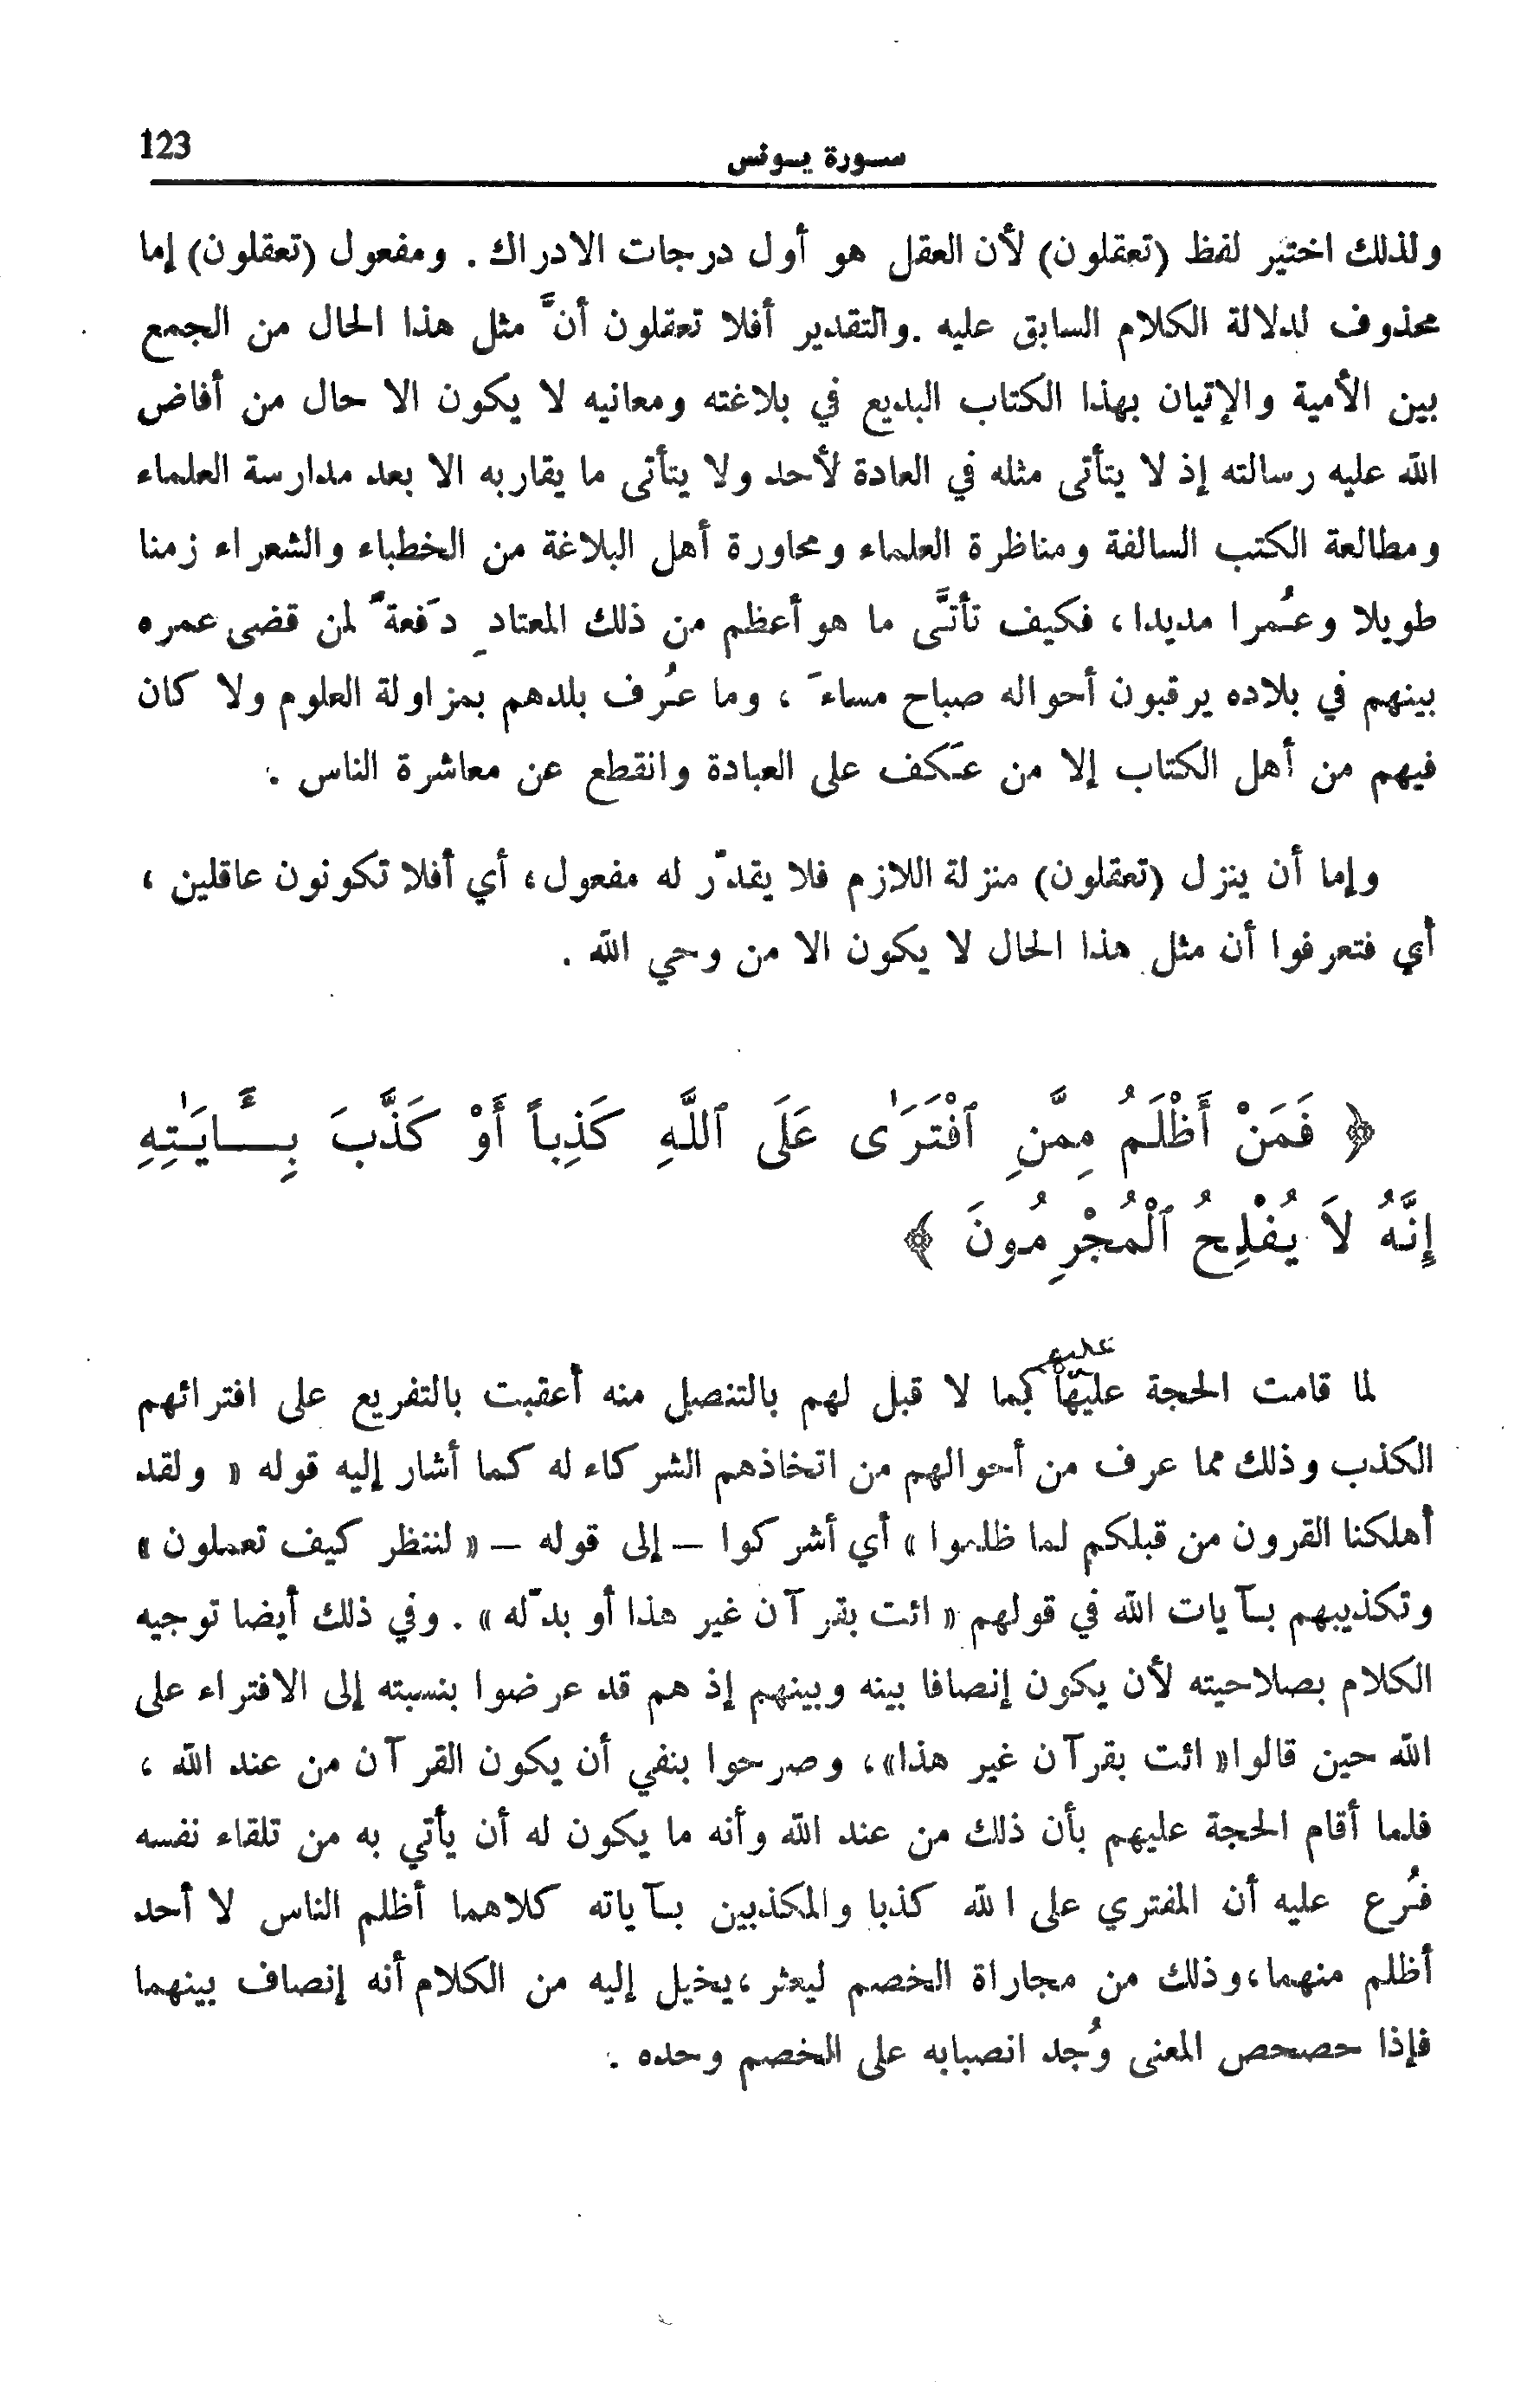 123
سورة يونس
ولذلك اختير لفظ (تعقلون) لأن العقل هو أول درجات الادراك . ومفعول (تعقلون) إما
محذوف لدلالة الكلام السابق عليه .والتقدير أفلا تعقلون أنَّ مثل هذا الحال من الجمع
بين الأمية والإتيان بهذا الكتاب البديع في بلاغته ومعانيه لا يكون الا حال من أفاض
الله عليه رسالته إذ لا يتأتى مثله في العادة لأحد ولا يتأتى ما يقاربه الا بعد مدارسة العلماء
ومطالعة الكتب السالفة ومناظرة العلماء ومحاورة أهل البلاغة من الخطباء والشعراء زمنا
طويلا وعُمرا مديدا، فكيف تأتَّى ما هو أعظم من ذلك المعتادِ دَفعةً لمن قضى عمره
بينهم في بلاده يرقبون أحواله صباح مساءَ ، وما عُرف بلدهم بمزاولة العلوم ولا كان
فيهم من أهل الكتاب إلا من عَكف على العبادة وانقطع عن معاشرة الناس .
وإما أن ينزل (تعقلون) منزلة اللازم فلا يقدّر له مفعول، أي أفلا تكونون عاقلين ،
أي فتعرفوا أن مثل هذا الحال لا يكون الا من وحي الله .
﴿ فَمَنْ أَظْلَمُ مِمَّنِ ٱفْتَرَىٰ عَلَى ٱللَّهِ كَذِباً أَوْ كَذَّبَ بِـَٔايَـٰتِهِ
إِنَّهُ لاَ يُفْلِحُ ٱلْمُجْرِمُونَ ﴾
عليهم
لما قامت الحجة عليها كما لا قبل لهم بالتنصل منه أعقبت بالتفريع على افترائهم
الكذب وذلك مما عرف من أحوالهم من اتخاذهم الشركاء له كما أشار إليه قوله « ولقد
أهلكنا القرون من قبلكم لما ظلموا » أي أشركوا – إلى قوله – « لننظر كيف تعملون »
وتكذيبهم بـآيات الله في قولهم « ائت بقرآن غير هذا أو بدّله » . وفي ذلك أيضا توجيه
الكلام بصلاحيته لأن يكون إنصافا بينه وبينهم إذ هم قد عرضوا بنسبته إلى الافتراء على
الله حين قالوا« ائت بقرآن غير هذا»، وصرحوا بنفي أن يكون القرآن من عند الله ،
فلما أقام الحجة عليهم بأن ذلك من عند الله وأنه ما يكون له أن يأتي به من تلقاء نفسه
فُرع عليه أن المفتري على الله كذبا والمكذبين بـآياته كلاهما أظلم الناس لا أحد
أظلم منهما،وذلك من مجاراة الخصم ليعثر ،يخيل إليه من الكلام أنه إنصاف بينهما
فإذا حصحص المعنى وُجد انصبابه على الخصم وحده .